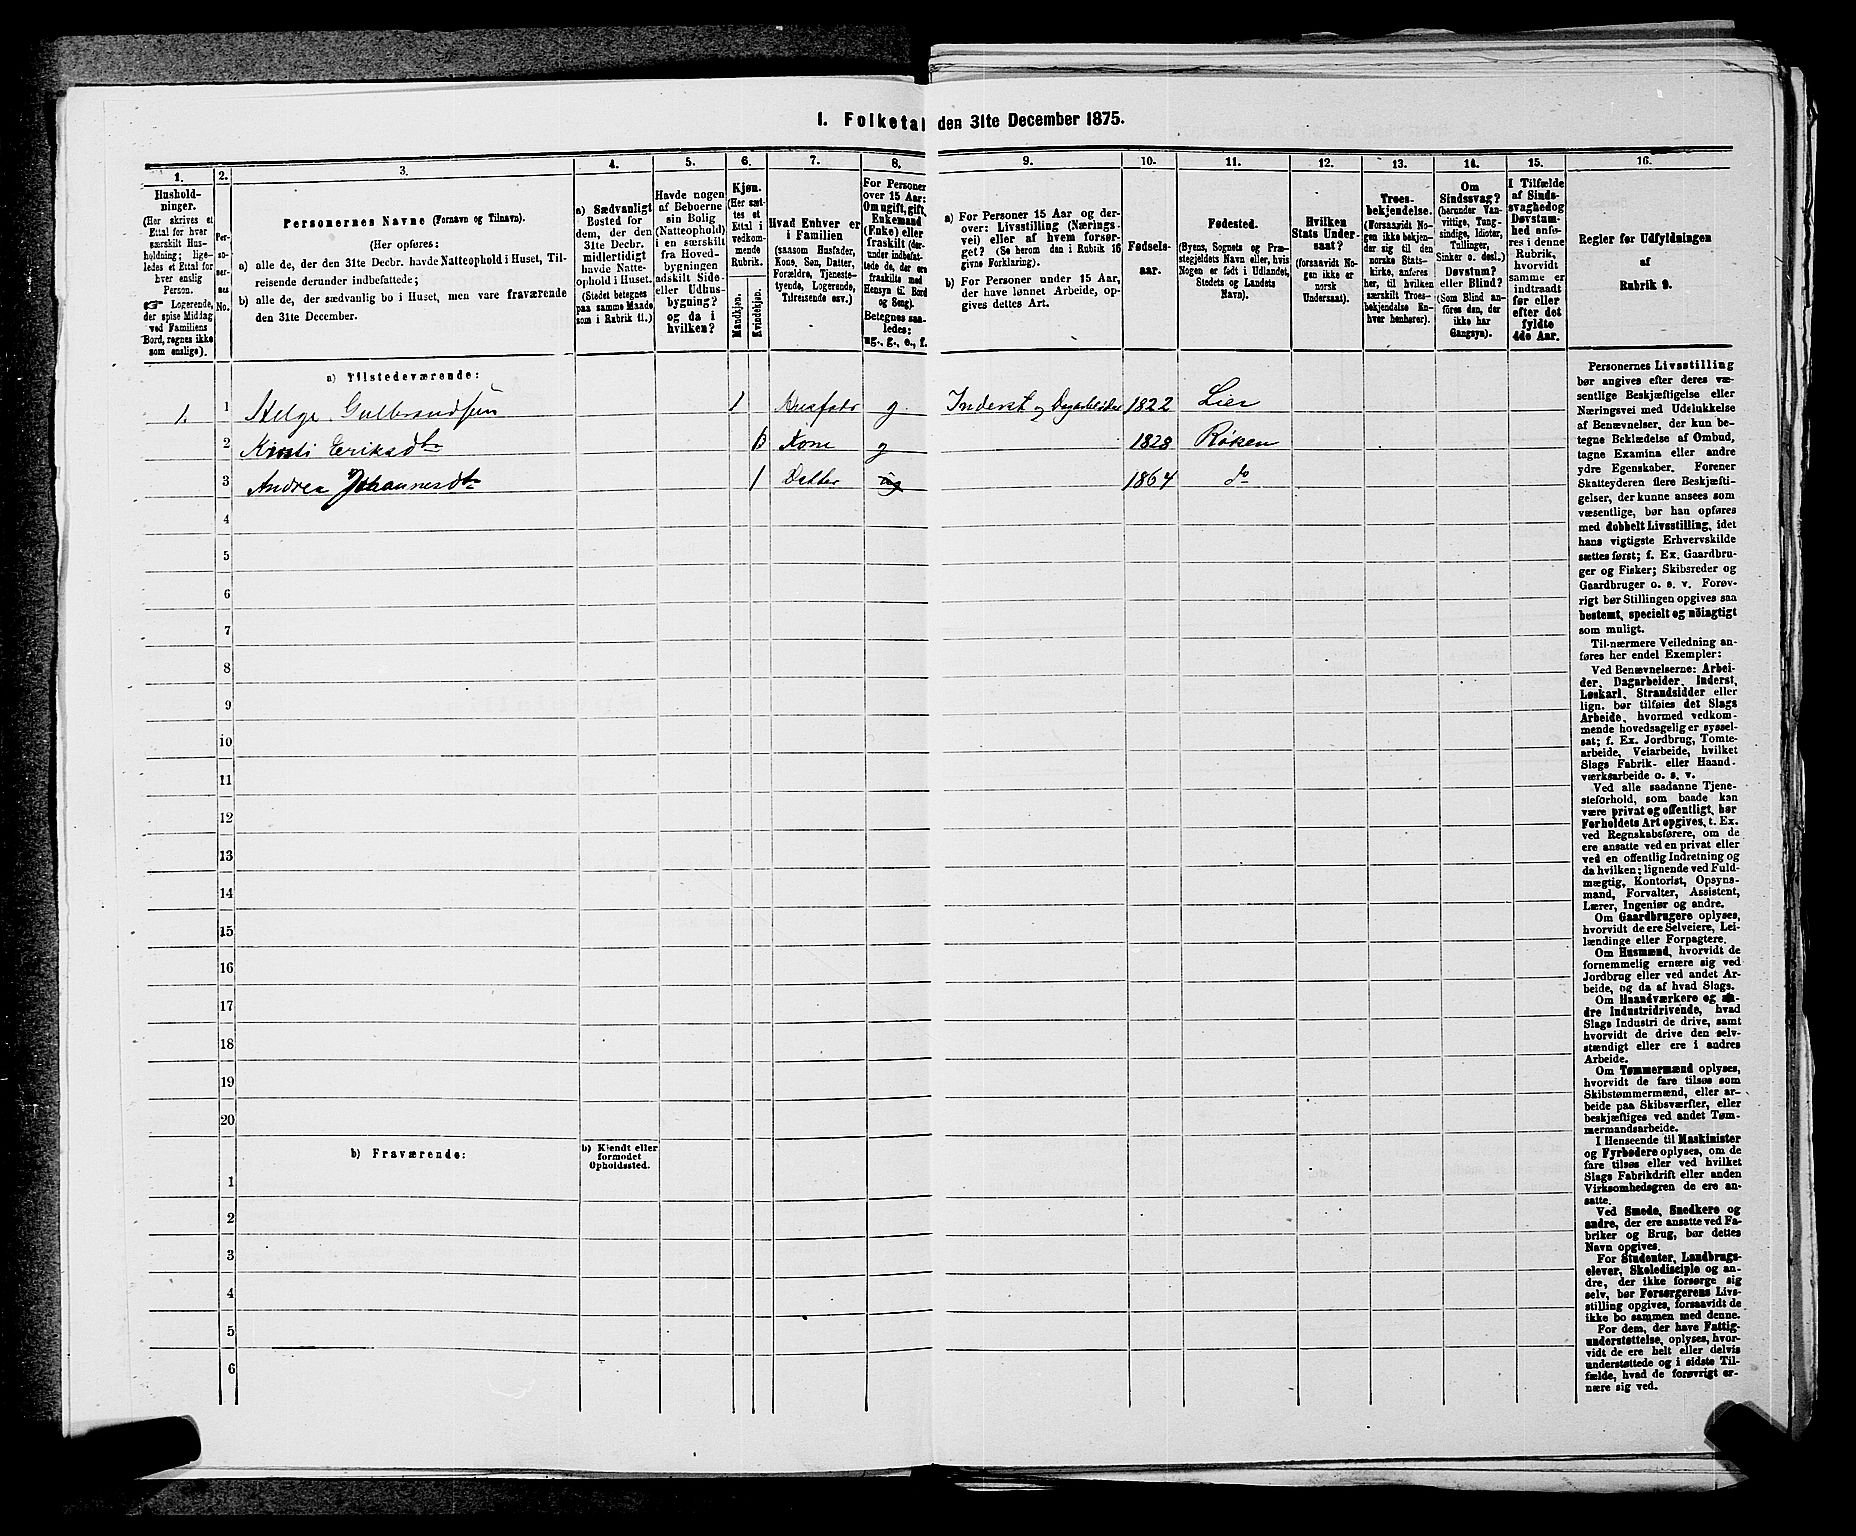 1. Folketal den 31te December 1875.
1.
Hushold-
ninger.
(Her skrives et
Ettal for hver
særskilt Hus-
holdning; lige-
ledes et Ettal for
hver enslig
Person.
☞ Logerende,
der spise Middag
ved Familiens
Bord, regnes ikke
som enslige).
2.
Per-
so-
ner-
nes
No.
3.
Personernes Navne (Fornavn og Tilnavn).
(Her opføres:
a) alle de, der den 31te Decbr. havde Natteophold i Huset, Til-
reisende derunder indbefattede;
b) alle de, der sædvanlig bo i Huset, men vare fraværende
den 31te December.
4.
a) Sædvanligt
Bosted for
dem, der den
31te Decbr.
midlertidigt
havde Natte-
ophold i Huset.
(Stedet betegnes
paa samme Maade
som i Rubrik 11.)
5.
Havde nogen
af Beboerne
sin Bolig
(Natteophold)
i en særskilt
fra Hoved-
bygningen
adskilt Side-
eller Udhus-
bygning?
og da i
hvilken?
6.
Kjøn.
(Her sæt-
tes et
Ettal i
vedkom-
mende
Rubrik.
Mandkjøn.
Kvindekjøn.
7.
Hvad Enhver er
i Familien
(saasom Husfader,
Kone, Søn, Datter,
Forældre, Tjeneste-
tyende, Logerende,
Tilreisende osv.)
8.
For Personer
over 15 Aar:
Om ugift, gift,
Enkemand
(Enke) eller
fraskilt (der-
under indbefat-
tede de, der ere
fraskilte med
Hensyn til Bord
og Seng).
Betegnes saa-
ledes:
ug., g., e., f.
9.
a) For Personer 15 Aar og der-
over: Livsstilling (Nærings-
vei) eller af hvem forsør-
get? (Se herom den i Rubrik 16
givne Forklaring).
b) For Personer under 15 Aar,
der have lønnet Arbeide, op-
gives dettes Art.
10.
Fødsels-
aar.
11.
Fødested.
(Byens, Sognets og Præ-
stegjeldets Navn eller, hvis
Nogen er født i Udlandet,
Stedets og Landets
Navn).
12.
Hvilken
Stats Under-
saat?
(forsaavidt No-
gen ikke er
norsk
Undersaat).
13.
Troes-
bekjendelse.
(Forsaavidt No-
gen ikke bekjen-
der sig til den
norske Stats-
kirke, anføres
her, til hvilken
særskilt Troes-
bekjendelse En-
hver henhører).
14.
Om
Sindssvag?
(herunder Van-
vittige, Tung-
sindige, Idioter,
Tullinger,
Sinker o. desl.)
Døvstum?
eller Blind?
(Som Blind an-
føres den, der
ikke har
Gangsyn).
15.
I Tilfælde
af Sinds-
svaghed og
Døvstum-
hed anfø-
res i denne
Rubrik,
hvorvidt
samme er
indtraadt
før eller
efter det
fyldte
4de Aar.
16.
Regler for Udfyldningen
af
Rubrik 9.
a) Tilstedeværende:
1. 1 Helge Gulbrandsen 1 Husfader g Inderst og Dagarbeider 1822 Lier
2 Kirsti Eriksdtr Kone g 1828 Røken
3 Andrea Johannesdtr 1 Datter ug 1864 do
4
5
6
7
8
9
10
11
12
13
14
15
16
17
18
19
20
b) Fraværende:
b) Kjendt eller
formodet
Opholdssted.
1
2
3
4
5
6
Personernes Livsstilling
bør angives efter deres væ-
sentlige Beskjæftigelse eller
Næringsvei med Udelukkelse
af Benævnelser, der kun be-
tegne Beklædelse af Ombud,
tagne Examina eller andre
ydre Egenskaber. Forener
Skatteyderen flere Beskjæfti-
gelser, der kunne ansees som
væsentlige, bør han opføres
med dobbelt Livsstilling, idet
hans vigtigste Erhvervskilde
sættes først; f. Ex. Gaardbru-
ger og Fisker; Skibsreder og
Gaardbruger o. s. v. Forøv-
rigt bør Stillingen opgives saa
bestemt, specielt og nöiagtigt
som muligt.
Til nærmere Veiledning an-
føres her endel Exempler:
Ved Benævnelserne: Arbei-
der, Dagarbeider, Inderst,
Løskarl, Strandsidder eller
lign. bør tilføies det Slags
Arbeide, hvormed vedkom-
mende hovedsagelig er syssel-
sat; f. Ex. Jordbrug, Tomte-
arbeide, Veiarbeide, hvilket
Slags Fabrik- eller Haand-
værksarbeide o. s. v.
Ved alle saadanne Tjene-
steforhold, som baade kan
være privat og offentligt, bør
Forholdets Art opgives, t. Ex.
ved Regnskabsførere, om de
ere ansatte ved en privat eller
ved en offentlig Indretning og
da hvilken; lignende ved Fuld-
mægtig, Kontorist, Opsyns-
mand, Forvalter, Assistent,
Lærer, Ingeniør og andre.
Om Gaardbrugere oplyses,
hvorvidt de ere Selveiere, Lei-
lændinge eller Forpagtere.
Om Husmænd, hvorvidt de
fornemmelig ernære sig ved
Jordbrug eller ved andet Ar-
beide, og da af hvad Slags.
Om Haandværkere og an-
dre Industridrivende, hvad
Slags Industri de drive, samt
hvorvidt de drive den selv-
stændigt eller ere i andres
Arbeide.
Om Tømmermænd oplyses,
hvorvidt de fare tilsøs som
Skibstømmermænd, eller ar-
beide paa Skibsværfter, eller
beskjæftiges ved andet Tøm-
mermandsarbeide.
I Henseende til Maskinister
og Fyrbødere oplyses, om de
fare tilsøs eller ved hvilket
Slags Fabrikdrift eller anden
Virksomhedsgren de ere an-
satte.
Ved Smede, Snedkere og
andre, der ere ansatte ved Fa-
briker og Brug, bør dettes
Navn opgives.
For Studenter, Landbrugs-
elever, Skoledisciple og an-
dre, der ikke forsørge sig
selv, bør Forsørgerens Livs-
stilling opgives, forsaavidt de
ikke bo sammen med denne.
For dem, der have Fattig-
understøttelse, oplyses, hvor-
vidt de ere helt eller delvis
understøttede og i sidste Til-
fælde, hvad de forøvrigt er-
nære sig ved.